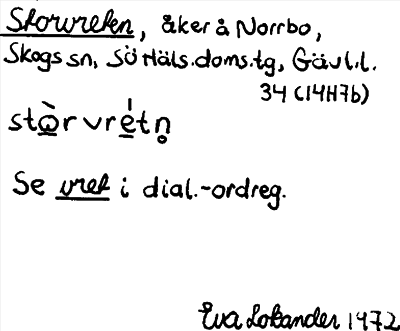 Storvreten, åker å Norrbo,
Skogs sn, SöHäls.doms.tg, Gävl.l.
34 (14H7b)
stò̲r vré̲tn̥
Se vret i dial.-ordreg.
Eva Lokander 1972